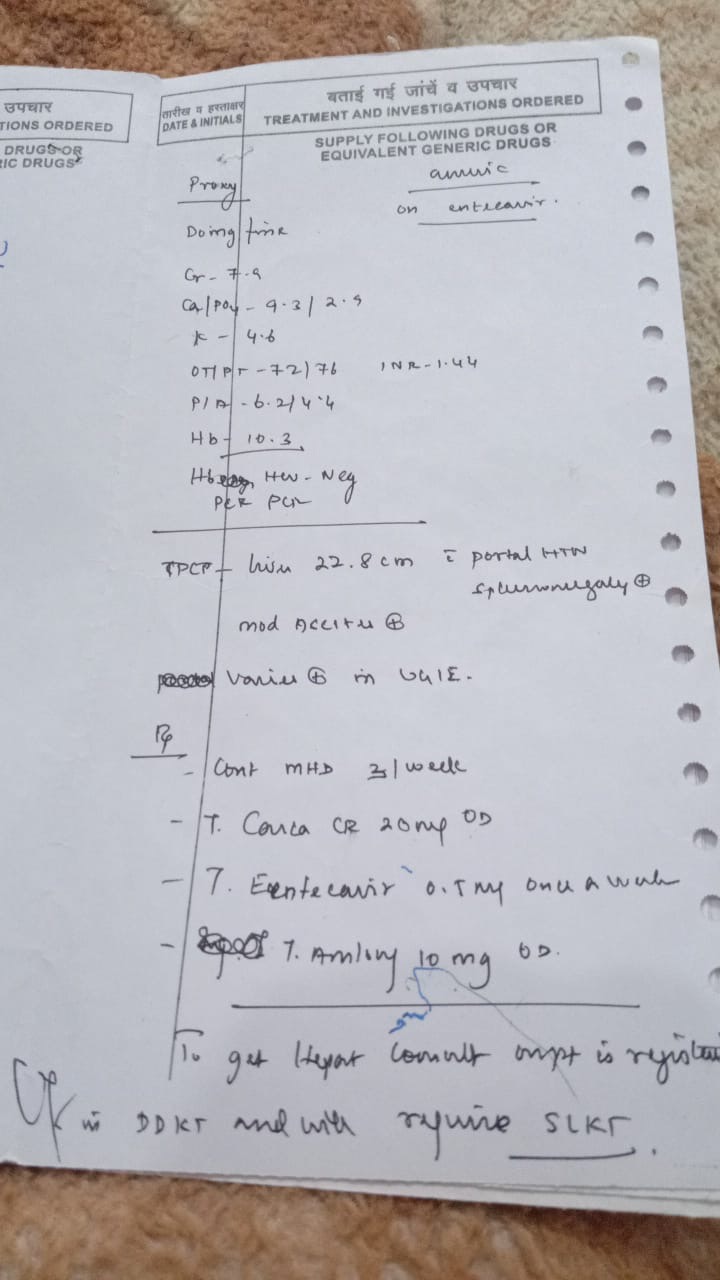 उपचार
TIONS ORDERED
DRUGS OR
IC DRUGS
तारीख व हस्ताक्षर
DATE & INITIALS
बताई गई जांचें व उपचार
TREATMENT AND INVESTIGATIONS ORDERED
SUPPLY FOLLOWING DRUGS OR
EQUIVALENT GENERIC DRUGS
Proxy
anuric
on entecavir.
Doing fine
Cr - 7.9
Ca/PO4 - 9.3/2.9
K - 4.6
OT/PT - 72/76 INR - 1.44
P/A - 6.2/4.4
Hb - 10.3
HCV - Neg
PCR PCR
TPCP - liver 22.8 cm c portal HTN
Splenomegaly ⊕
mod Ascites ⊕
varices ⊕ in UGIE.
Rx
- Cont MHD 3/week
- T. CR 20mg OD
- T. Entecavir 0.5 mg once a week
- T. Amlong 10 mg OD.
To get Hepat consult as pt is registered
in DDKT and will require SLKT.